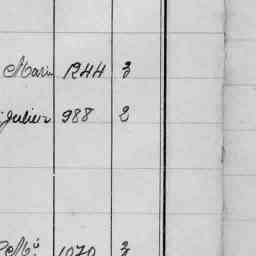 Marin 1244 3
Julien 988 2
1070 3